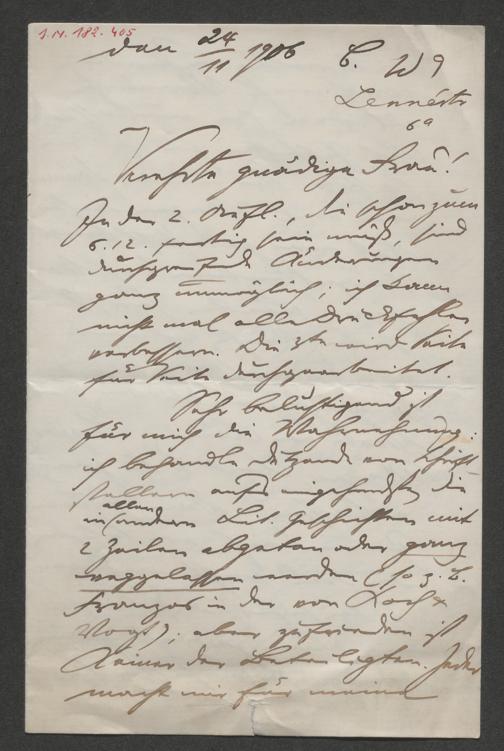 I.N. 182.405
den 24/11 1906 B. W 9
Lennéstr
6a
Verehrte gnädige Frau!
In der 2. Aufl., die schon zum
6.12. fertig sein muß, sind
durchgreifende Änderungen
ganz unmöglich; ich kann
nicht mal alle Druckfehler
verbessern. Die 3te wird Seite
für Seite durchgearbeitet.
Sehr belustigend ist
für mich die Wahrnehmung:
ich behandle Dutzende von Schrift-
stellern aufs eingehendste die
in allen andern Lit. Geschichten mit
2 Zeilen abgetan oder ganz
weggelassen werden (so z. B.
Franzos in der von Koch &
Vogt); aber zufrieden ist
Keiner der Beteiligten. Jeder
macht mir für meine